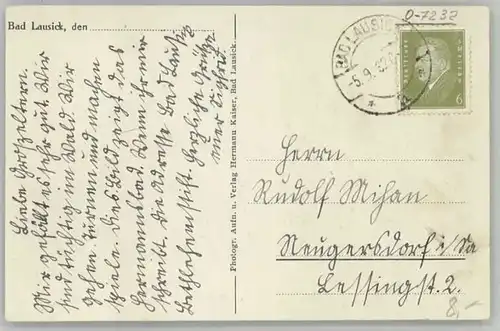 Bad Lausick, den
Liebe Großeltern.
Mir gefällt es sehr gut. Wir
sind tüchtig im Wald. Wir
gehen turnen und machen
spiele. Dies Bild zeigt das
Hermannsbad. Wenn ihr mir
schreibt, die Adresse Bad Lausick
Bethlehemstift. Herzliche Grüße
euer Sigfried
Photogr. Aufn. u. Verlag Hermann Kaiser, Bad Lausick.
O-7232
BAD LAUSICK
-5.9.32
6
Herrn
Rudolf Mihan
Neugersdorf i/Sa
Lessingst. 2.
8,-